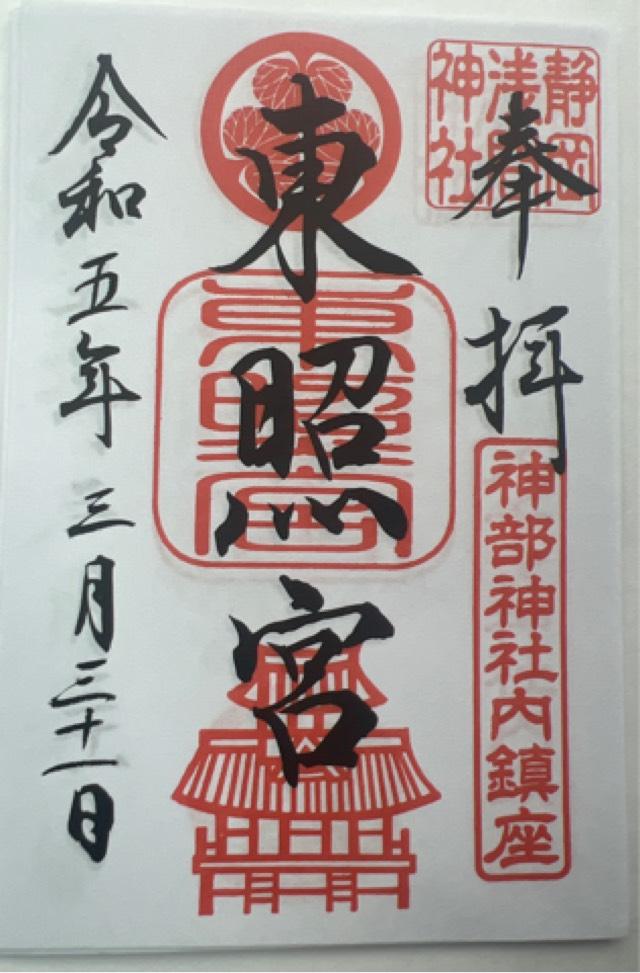 奉拝
静岡
浅間
神社
神部神社内鎮座
東照宮
東照宮
令和五年三月三十一日